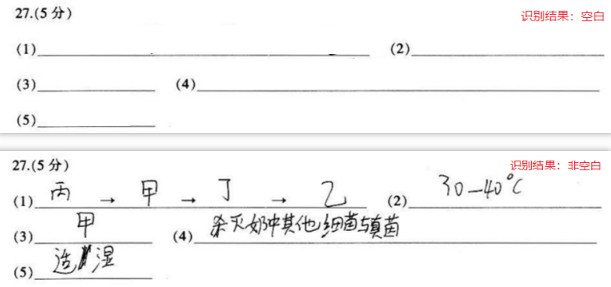 27.(5分) 识别结果：空白
(1) (2)
(3) (4)
(5)
27.(5分) 识别结果：非空白
(1) 丙 → 甲 → 丁 → 乙 (2) 30—40°C
(3) 甲 (4) 杀灭奶中其他细菌与真菌
(5) 湿